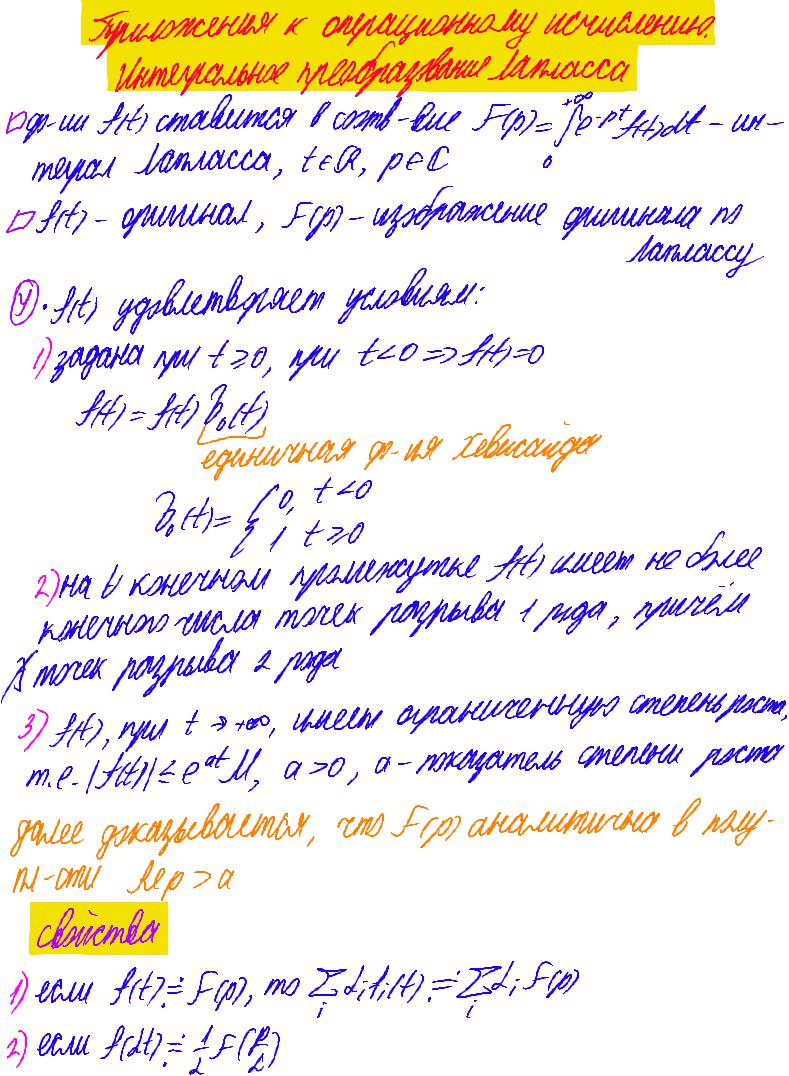 Приложения к операционному исчислению.
Интегральное преобразвание Лапласса
□ ф-ии f(t) ставится в соотв-вие F(p)=∫₀^{+∞} e^{-pt} f(t)dt – ин-
теграл Лапласса, t∈ℝ, p∈ℂ
□ f(t) – оригинал, F(p) – изображение оригинала по
Лаплассу
У · f(t) удовлетворяет условиям:
1) задана при t≥0, при t<0 ⇒ f(t)=0
f(t) = f(t) σ₀(t)
единичная ф-ия Хевисайда
σ₀(t) = { 0, t<0
1 t≥0
2) на ∀ конечном промежутке f(t) имеет не более
конечного числа точек разрыва 1 рода, причём
∄ точек разрыва 2 рода
3) f(t), при t → +∞, имеет ограниченную степень роста,
т.е. |f(t)| ≤ e^{at} M, a>0, a – показатель степени роста
далее доказывается, что F(p) аналитична в полу-
пл-сти Re p > a
свойства
1) если f(t) ≓ F(p), то ∑_i α_i f_i(t) ≓ ∑_i α_i F(p)
2) если f(αt) ≓ 1/α F(p/α)